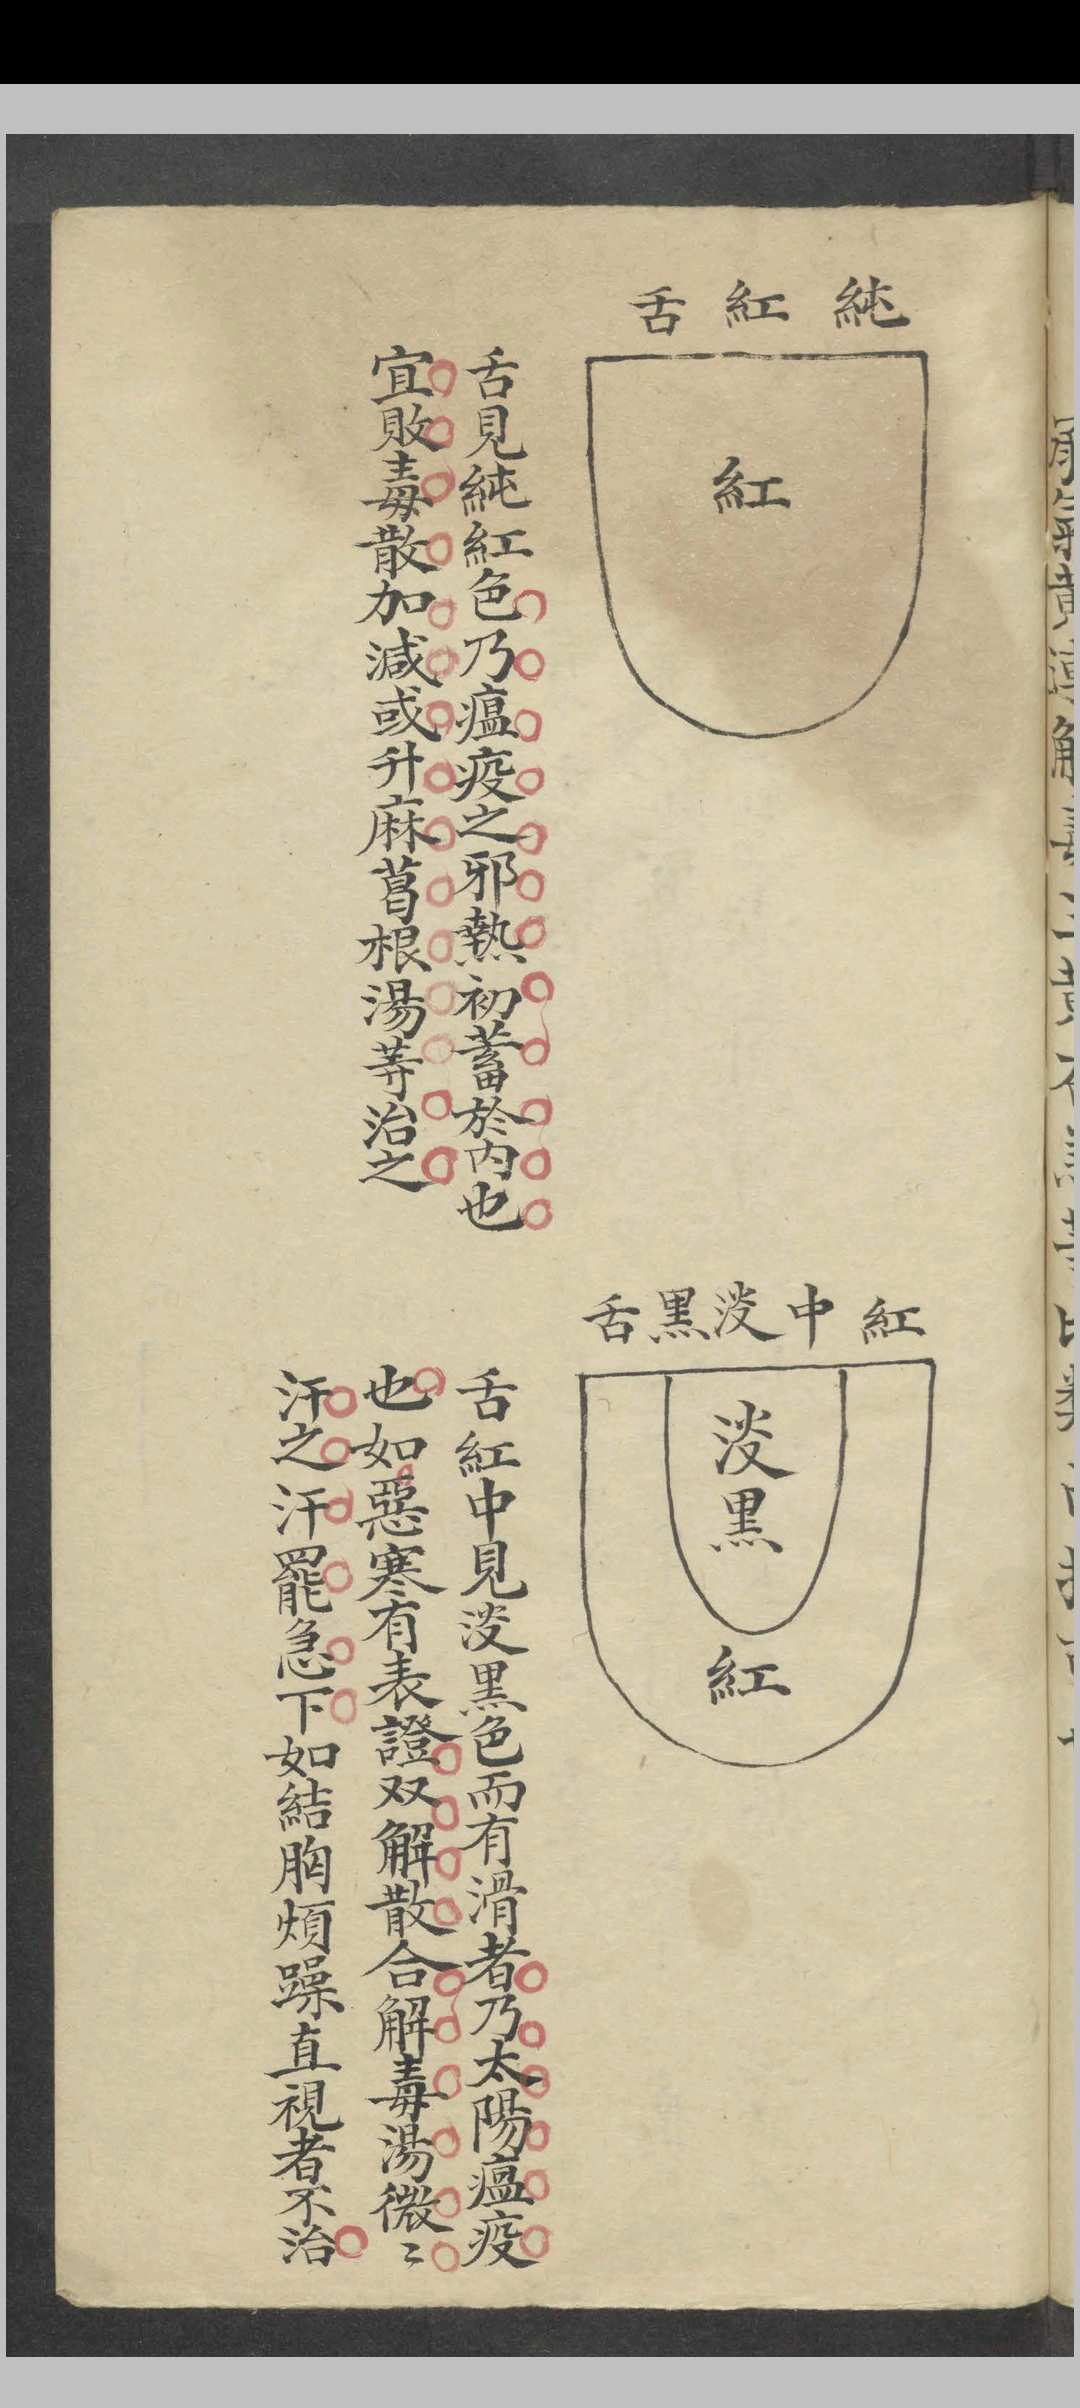 純紅舌
紅
舌見純紅色乃瘟疫之邪熱初蓄於内也
宜敗毒散加減或升麻葛根湯等治之
紅中淡黒舌
淡黒
紅
舌紅中見淡黒色而有滑者乃太陽瘟疫
也如惡寒有表證双解散合解毒湯微〻
汗之汗罷急下如結胸煩躁直視者不治